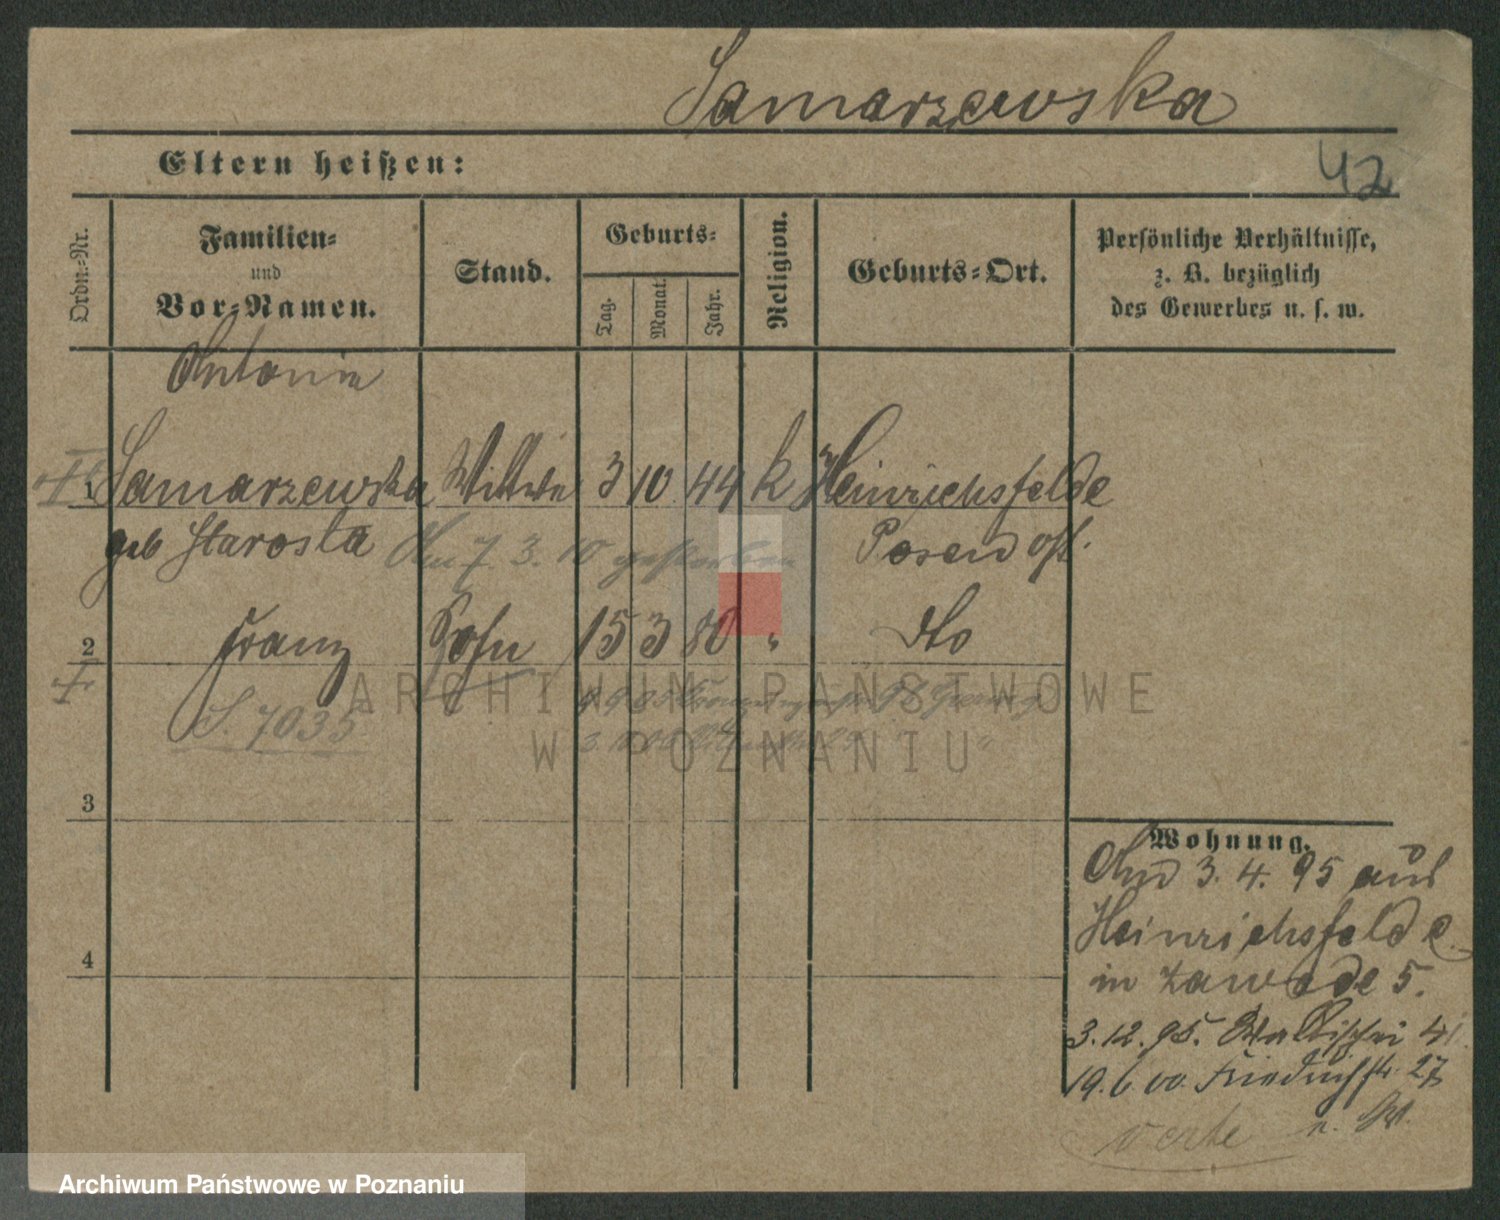 Samarzewska
Eltern heißen:
42
Ordn.-Nr.
Familien-
und
Vor-Namen.
Stand.
Geburts-
Tag.
Monat.
Jahr.
Religion.
Geburts-Ort.
Persönliche Verhältnisse,
z. B. bezüglich
des Gewerbes u. s. w.
Antonie
1 Samarzewska Wittwe 3 10 44 k Heinrichsfelde
geb Starosta Posen ost.
Am 7. 3. 10 gestorben
2 Franz Sohn 15 3 80 " dto
S. 7035
3
4
Wohnung.
3. 4. 95 aus
Heinrichsfelde
in Zawade 5.
3. 12. 95. Wallischei 41
19. 6. 00. Friedrichstr. 27
verte
ARCHIWUM PAŃSTWOWE
W POZNANIU
Archiwum Państwowe w Poznaniu